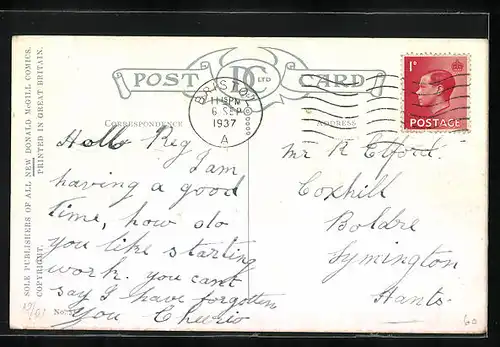 POST DC LTD CARD
BRISTOL
11 15 PM
6 SEP
1937
A
1D
POSTAGE
CORRESPONDENCE
ADDRESS
Hello Reg I am
having a good
time, how do
you like starting
work. you cant
say I have forgotten
you Cheerio
Mr R Elford.
Coxhill
Boldre
Lymington
Hants
SOLE PUBLISHERS OF ALL NEW DONALD McGILL COMICS.
COPYRIGHT. PRINTED IN GREAT BRITAIN.
No.
60